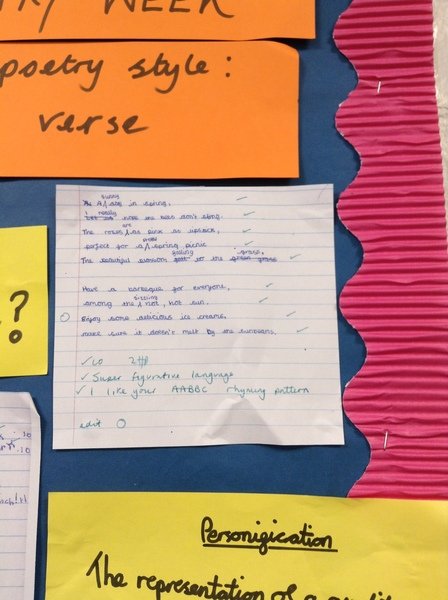 WEEK
poetry style:
verse
?
sunny
A day in spring,
I really
hope the bees don't sting.
are
The roses as pink as lipstick,
perfect for a spring picnic
falling grass,
The beautiful blossom to the green grass
Have a barbeque for everyone,
sizzling
among the hot, hot sun.
Enjoy some delicious ice creams,
make sure it doesn't melt by the sunbeams.
✓LO
✓Super figurative language
✓I like your AABBC rhyming pattern
edit O
Personigication
The representation of a